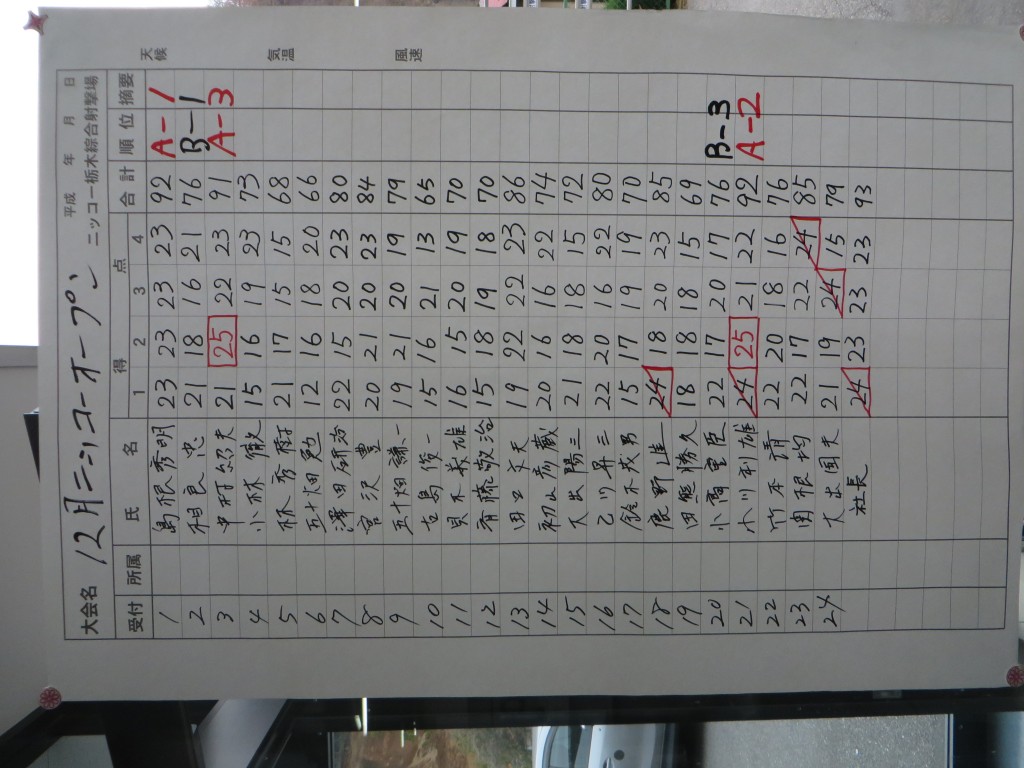 大会名 12月ニッコーオープン 平成 年 月 日
ニッコー栃木綜合射撃場
天候 気温 風速
受付 所属 氏名 得点 合計 順位 摘要
1 2 3 4
1 島根秀明 23 23 23 23 92 A-1
2 相良忠 21 18 16 21 76 B-1
3 中村紹夫 21 25 22 23 91 A-3
4 小林徹 15 16 19 23 73
5 林秀樹 21 17 15 15 68
6 五十畑勉 12 16 18 20 66
7 澤田研芳 22 15 20 23 80
8 宮沢豊 20 21 20 23 84
9 五十畑謙一 19 21 20 19 79
10 古島俊一 15 16 21 13 65
11 貝木英雄 16 15 20 19 70
12 斉藤敬治 15 18 19 18 70
13 田口 19 22 22 23 86
14 初山彦蔵 20 16 16 22 74
15 大出陽三 21 18 18 15 72
16 乙川昇三 22 20 16 22 80
17 鈴木茂男 15 17 19 19 70
18 鹿野 24 18 20 23 85
19 田熊勝久 18 18 18 15 69
20 小 22 17 20 17 76 B-3
21 小川利雄 24 25 21 22 92 A-2
22 竹本清 22 20 18 16 76
23 関根均 22 17 22 24 85
24 大出国夫 21 19 24 15 79
社長 24 23 23 23 93